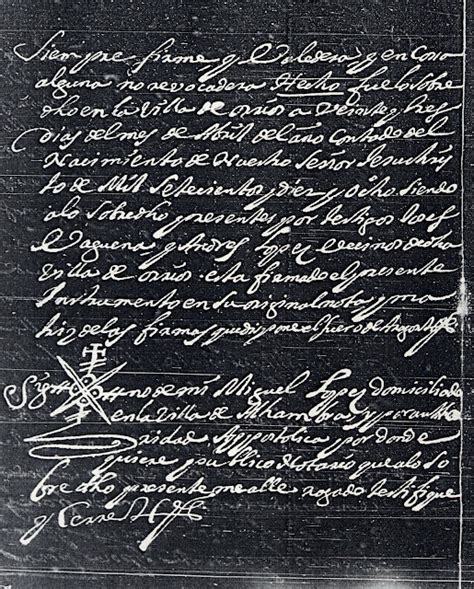 Siempre firme y Valedera, y en Cosa
alguna no revocadera Hecho fue lo Sobre
dho en la Villa de orrios a Veinte y tres
Dias del mes de Abril del año Contado del
Nacimiento de Nuestro Señor Jesuchris
to de Mil Setecientos y diez y Ocho siendo
a lo Sobredho presentes por testigos Josef
Vaguena y Andres Lopez Vecinos de dha
Villa de orrios. esta firmado el presente
Instrumento en su original nota y ma
triz de las firmas que dispone el fuero de Aragon
Sig no de mi Miguel Lopez domiciliado
en la Villa de Alhambra, y por auto
ridad Appostolica por donde
quiere publico Notario que a lo So
bredho presente me alle rogado testifique
y Cerre